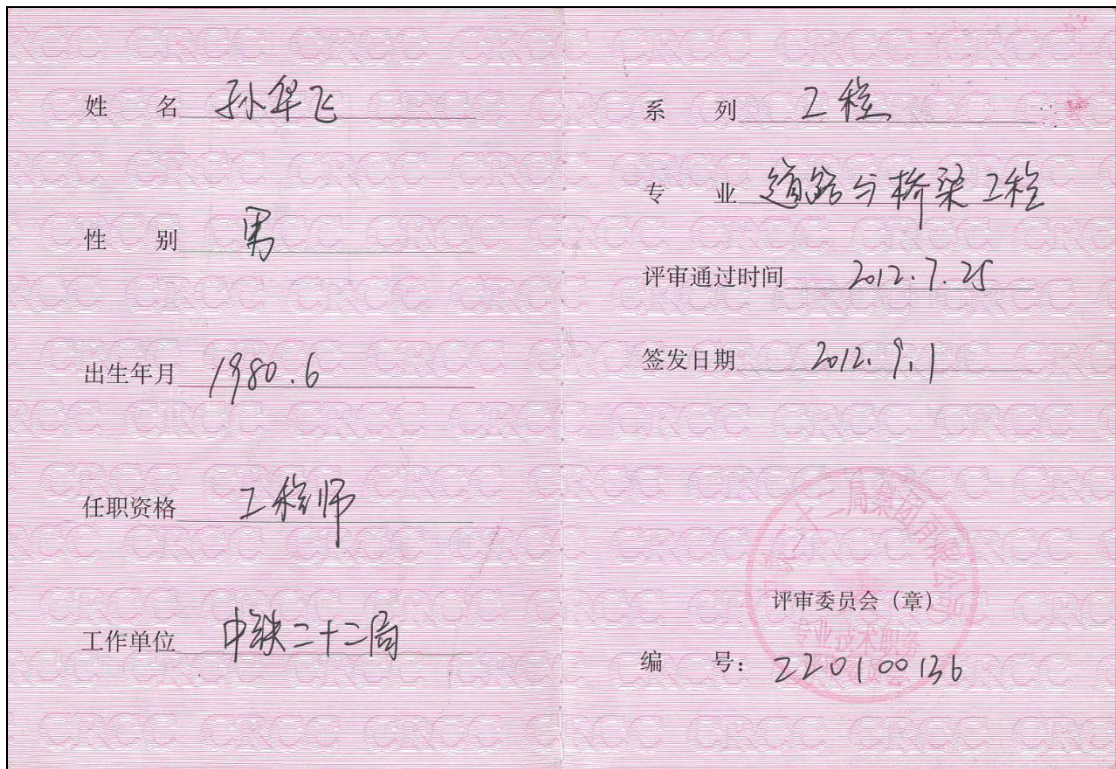 姓 名 孙华飞
性 别 男
出生年月 1980.6
任职资格 工程师
工作单位 中铁二十二局
系 列 工程
专 业 道路与桥梁工程
评审通过时间 2012.7.25
签发日期 2012.9.1
中铁二十二局集团有限公司
评审委员会（章）
专业技术职务
编 号：220100136